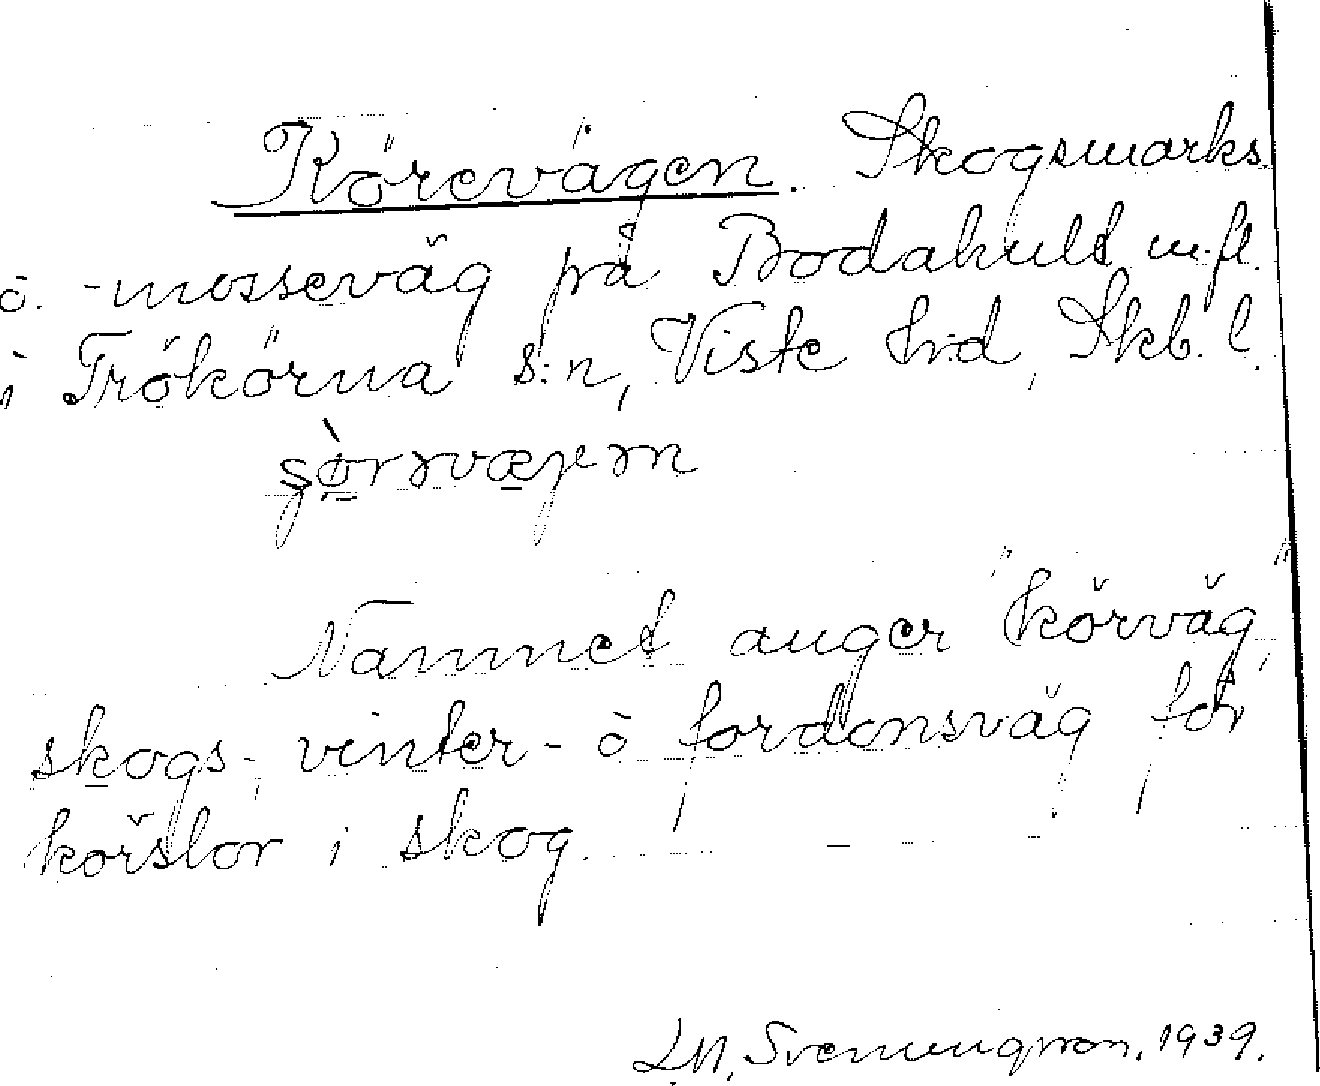 Körevägen. Skogsmarks
o. -mosseväg på Bodakult m.fl.
i Trökörna s:n, Viste hrd, Skb. l.
Namnet anger "körväg",
skogs-, vinter- o fordonsväg för
körslor i skog.
Svenungsson. 1939.